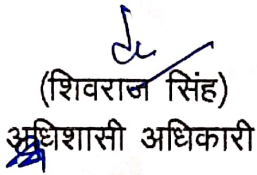 (शिवराज सिंह)
अधिशासी अधिकारी